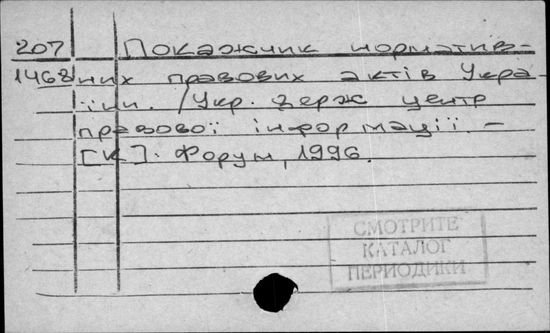 207 Покажчик норматив-
1468 них правових актів Укра-
їни. /Укр. держ центр
правової інформації. -
[К]. Форум, 1996.
СМОТРИТЕ
КАТАЛОГ
ПЕРИОДИКИ